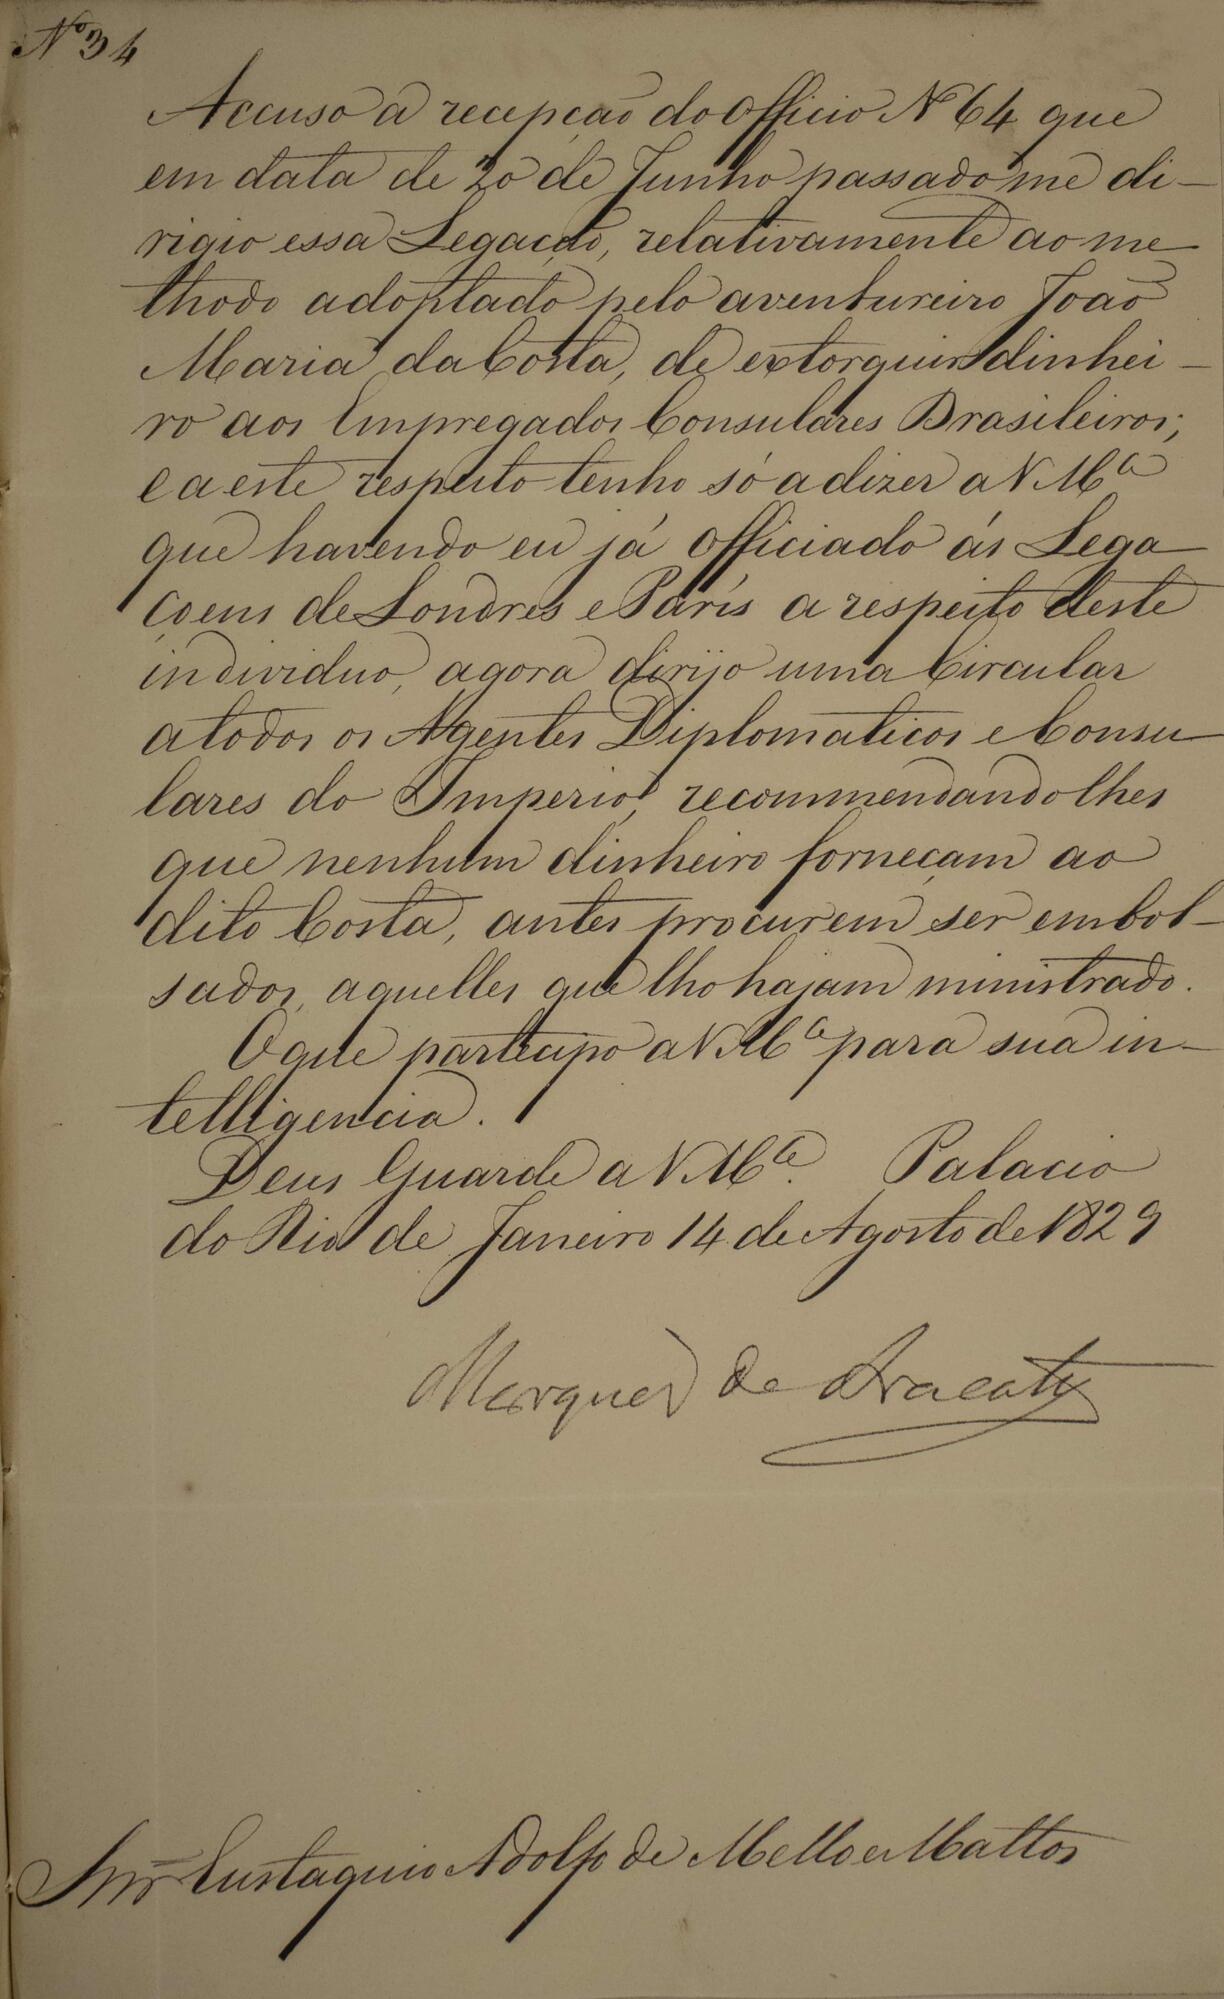 Nº 34
Accuso a recepção do Officio Nº 64 que
em data de 20 de Junho passado me di-
rigio essa Legação, relativamente ao me-
thodo adoptado pelo aventureiro João
Maria da Costa, de extorquir dinhei-
ro aos Empregados Consulares Brasileiros;
e a este respeito tenho só a dizer a V Mce
que havendo eu já officiado ás Lega-
çoens de Londres e París a respeito deste
individuo, agora dirijo uma Circular
a todos os Agentes Diplomaticos e Consu-
lares do Imperio, recommendandolhes
que nenhum dinheiro forneçam ao
dito Costa, antes procurem ser embol-
sados, aquelles que lho hajam ministrado.
O que participo a V Mce para sua in-
telligencia.
Deus Guarde a V Mce. Palacio
do Rio de Janeiro 14 de Agosto de 1829
Marquez de Aracaty
Snr Eustaquio Adolfo de Mello e Mattos